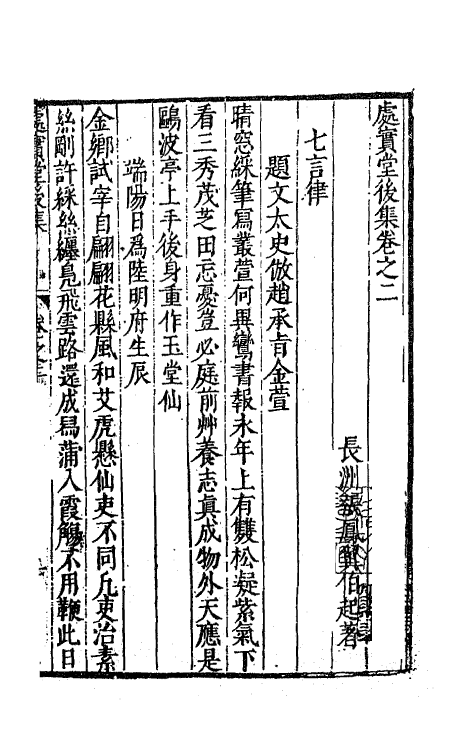 處實堂後集卷之二
長洲張鳳翼伯起著
七言律
題文太史倣趙承旨金萱
晴窓綵筆寫叢萱何異鸞書報永年上有雙松凝紫氣下
看三秀茂芝田忘憂豈必庭前艸養志真成物外天應是
鷗波亭上手後身重作玉堂仙
端陽日爲陸明府生辰
金鄉試宰自翩翩花縣風和艾虎懸仙吏不同凢吏治素
絲剛許綵絲纏鳧飛雲路還成舄蒲入霞觴不用鞭此日
處實堂後集
卷之二